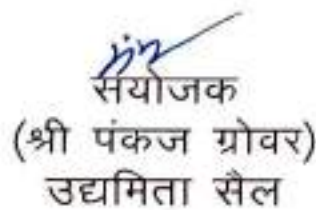 संयोजक
(श्री पंकज ग्रोवर)
उद्यमिता सैल